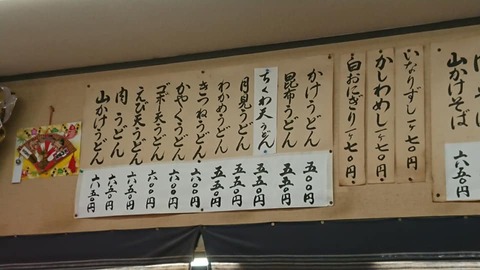 山かけそば
六五〇円
いなりずし一ヶ七〇円
かしわめし一ヶ七〇円
白おにぎり一ヶ七〇円
かけうどん
五〇〇円
昆布うどん
五五〇円
ちくわ天うどん
五五〇円
月見うどん
五五〇円
わかめうどん
五五〇円
きつねうどん
六〇〇円
かやくうどん
六〇〇円
ゴボー天うどん
六〇〇円
えび天うどん
六五〇円
肉うどん
六五〇円
山かけうどん
六五〇円